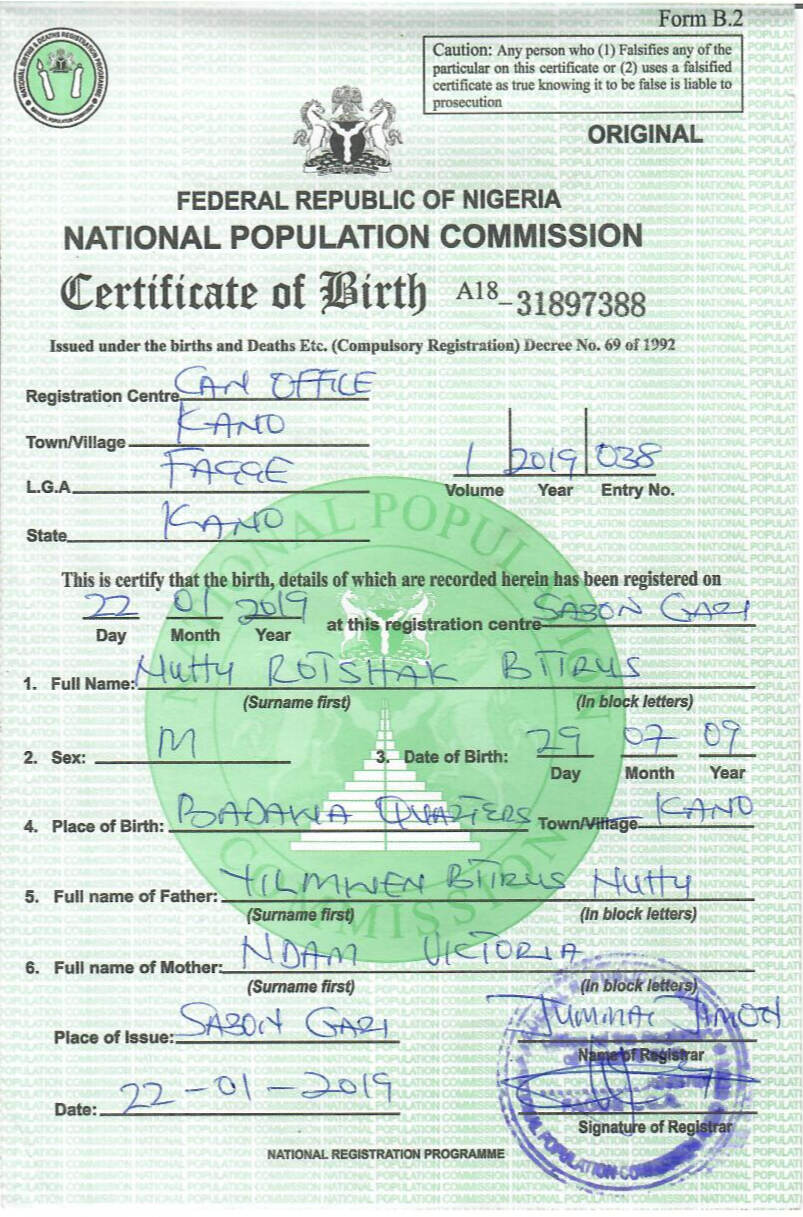 Form B.2
Caution: Any person who (1) Falsifies any of the
particular on this certificate or (2) uses a falsified
certificate as true knowing it to be false is liable to
prosecution
ORIGINAL
FEDERAL REPUBLIC OF NIGERIA
NATIONAL POPULATION COMMISSION
Certificate of Birth A18-31897388
Issued under the births and Deaths Etc. (Compulsory Registration) Decree No. 69 of 1992
Registration Centre CAN OFFICE
Town/Village KANO
L.G.A FAGGE
1 2019 038
Volume Year Entry No.
State KANO
This is certify that the birth, details of which are recorded herein has been registered on
22 01 2019 at this registration centre SABON GARI
Day Month Year
1. Full Name: Nutty ROTSHAK BITRUS
(Surname first) (In block letters)
2. Sex: M 3. Date of Birth: 29 07 09
Day Month Year
4. Place of Birth: BADAWA QUARTERS Town/Village KANO
5. Full name of Father: YILMWEN BITRUS Nutty
(Surname first) (In block letters)
6. Full name of Mother: NDAM VICTORIA
(Surname first) (In block letters)
Place of Issue: SABON GARI
Name of Registrar
Date: 22-01-2019
Signature of Registrar
NATIONAL REGISTRATION PROGRAMME
NATIONAL POPULATION COMMISSION